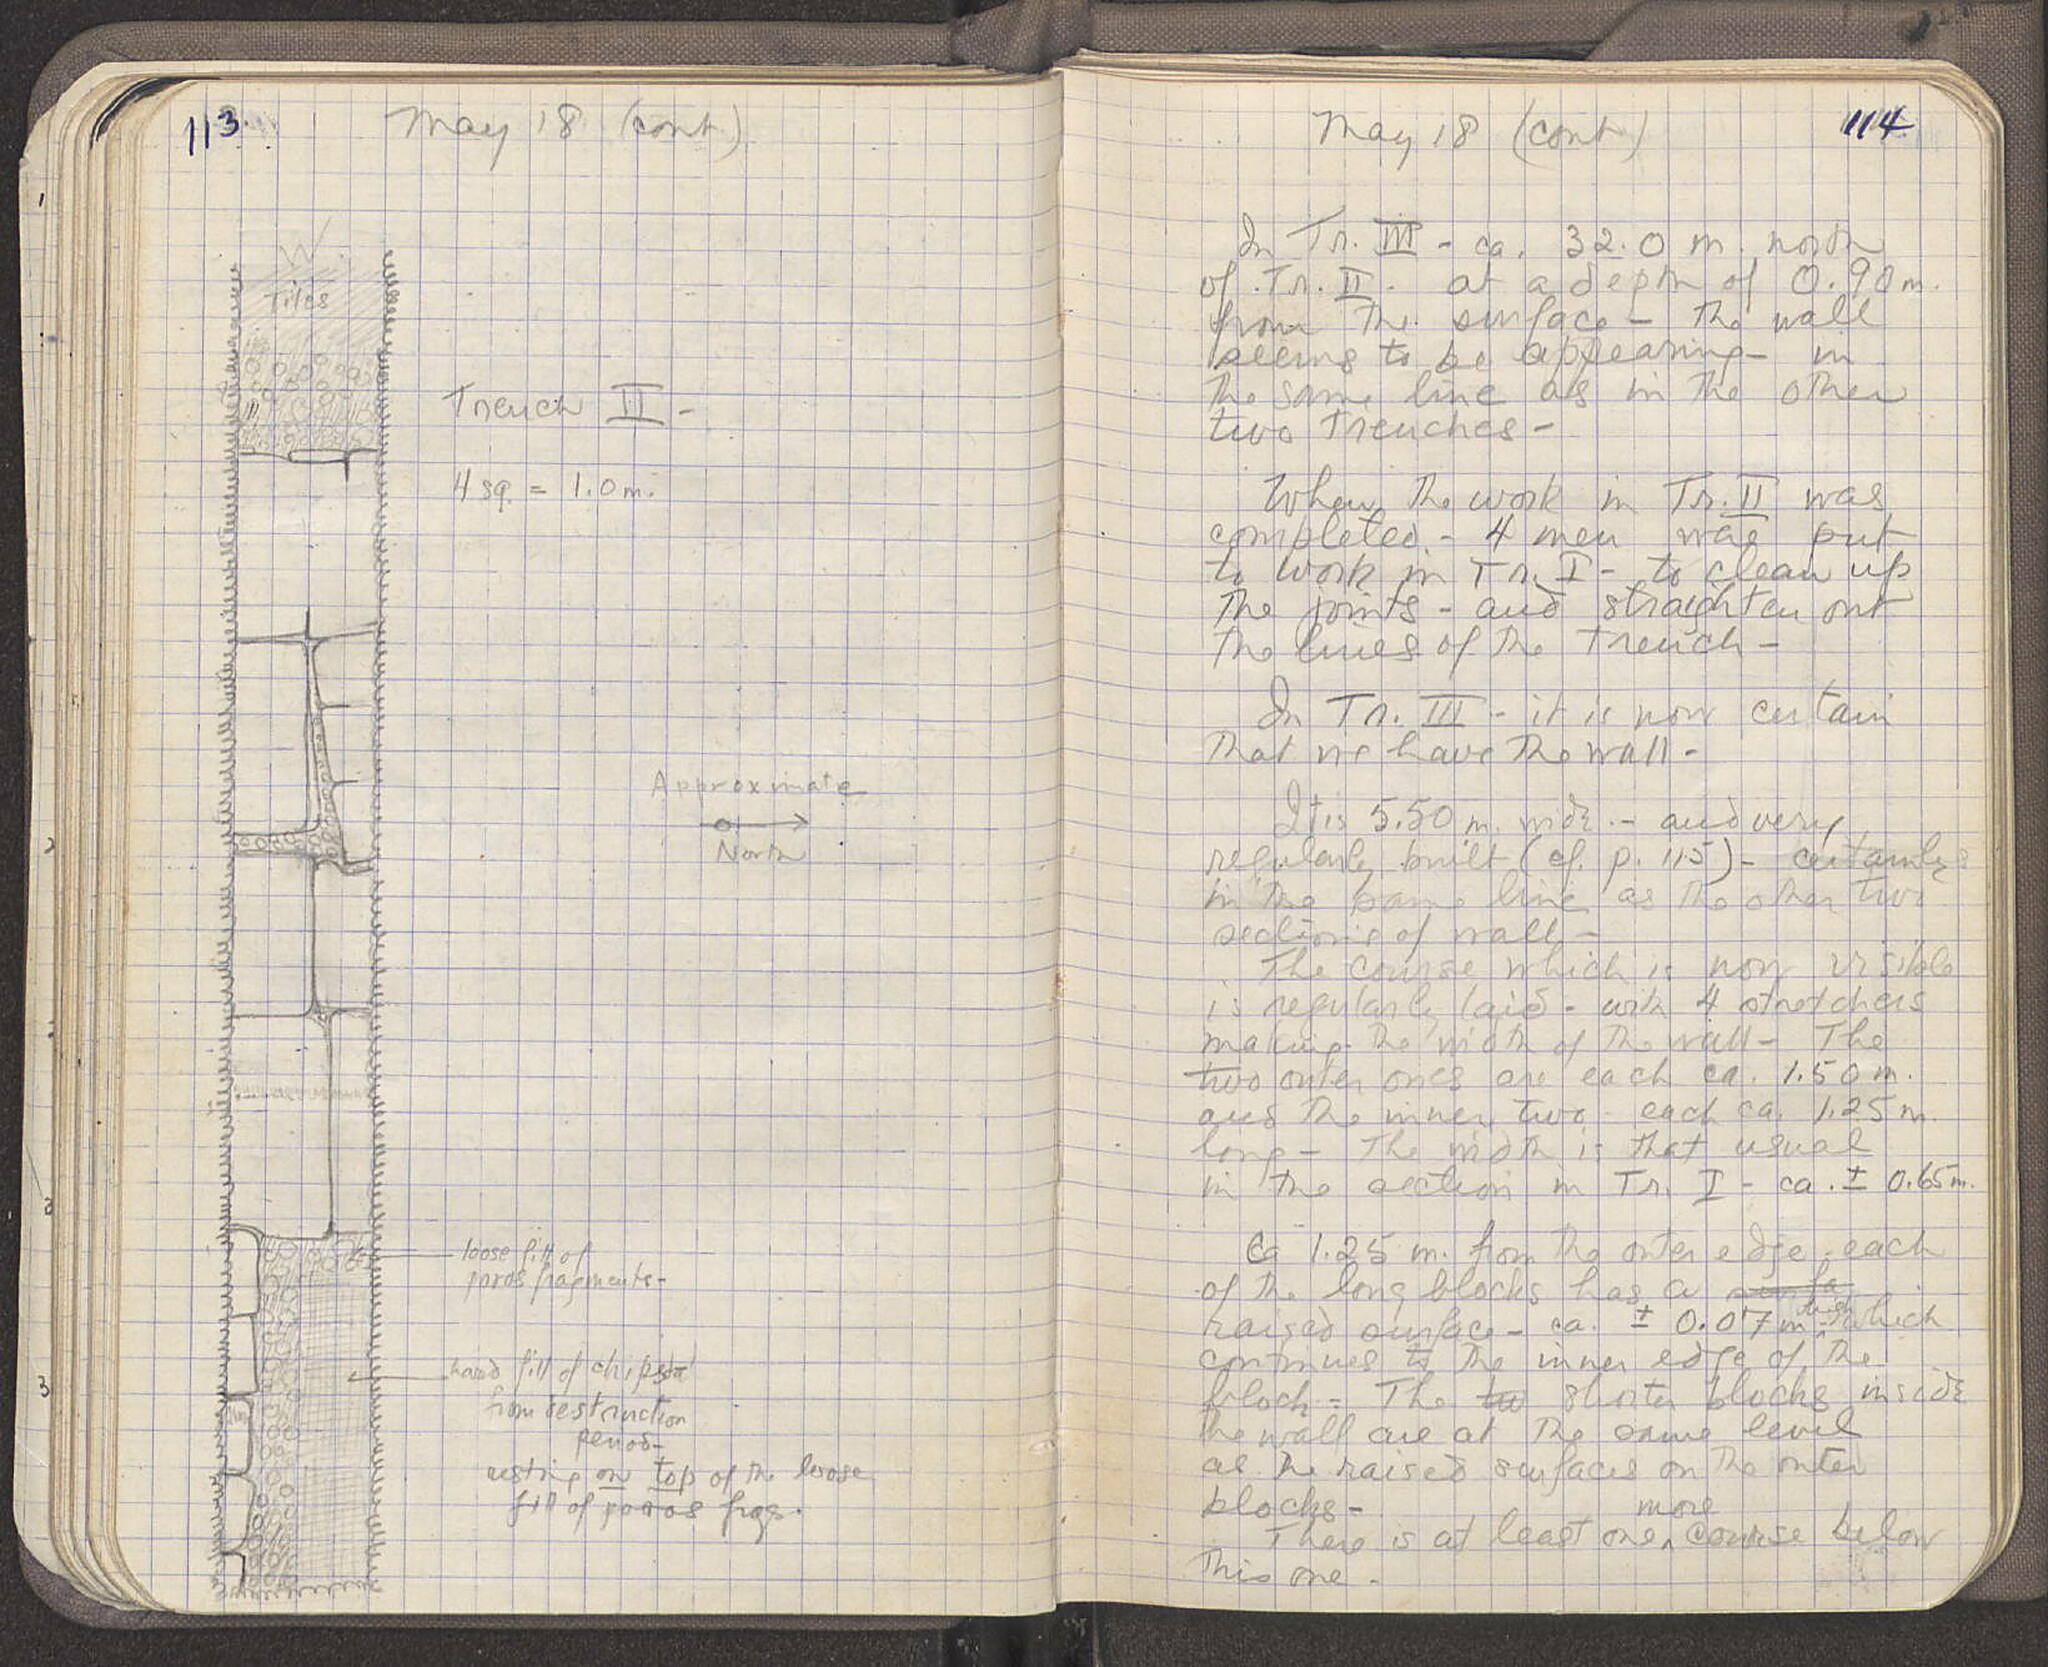 113.
May 18 (cont)
Tiles
Trench II -
4 sq. = 1.0 m.
Approximate
North
loose fill of
poros fragments-
hard fill of chips
from destruction
period-
resting on top of the loose
fill of poros frags.
May 18 (cont)
114
In Tr. III - ca. 32.0 m. north
of Tr. II - at a depth of 0.90 m.
from the surface - the wall
seems to be appearing - in
the same line as in the other
two trenches -
When the work in Tr. II was
completed - 4 men was put
to work in Tr. I - to clean up
the joints - and straighten out
the lines of the trench -
In Tr. III - it is now certain
that we have the wall -
It is 5.50 m. wide - and very
regularly built (cf. p. 115) - certainly
in the same line as the other two
sections of wall -
The course which is now visible
is regularly laid - with 4 stretchers
making the width of the wall - The
two outer ones are each ca. 1.50 m.
and the inner two each ca. 1.25 m.
long - The width is that usual
in the section in Tr. I - ca. ± 0.65 m.
Ca 1.25 m. from the outer edge each
of the long blocks has a surfa
raised surface - ca. ± 0.07 m high - which
continues to the inner edge of the
block - The two shorter blocks inside
the wall are at the same level
as the raised surfaces on the outer
blocks -
There is at least one more course below
this one -